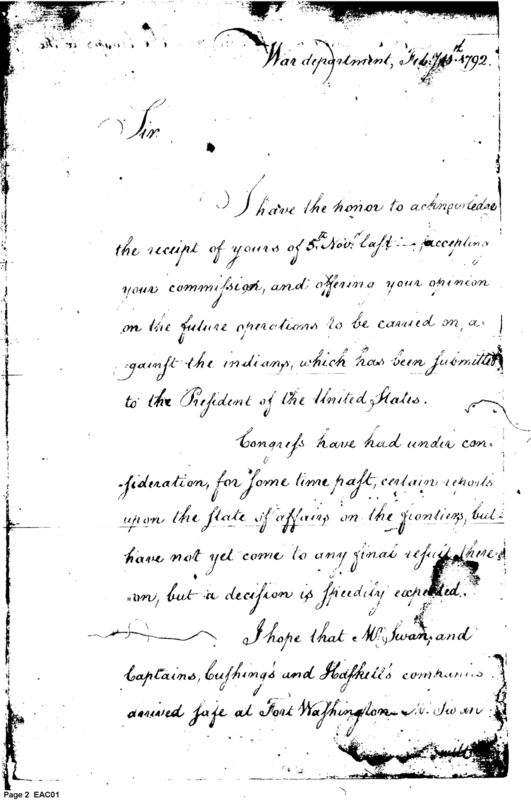 War department, Feb.y 11th 1792.
Sir
I have the honor to acknowledge
the receipt of yours of 5th Novr. last — accepting
your commission, and offering your opinion
on the future operations to be carried on, a-
gainst the indians, which has been submitted
to the President of the United States.
Congress have had under con-
sideration, for some time past, certain reports
upon the state of affairs on the frontiers, but
have not yet come to any final result there-
=on, but a decision is speedily expected.
I hope that Mr. Swan, and
Captains, Cushing's and Haskell's companies
arrived safe at Fort Washington — Mr. Swan
will
Page 2 EAC01